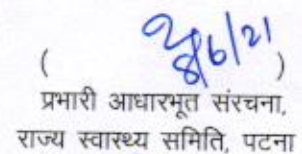 ( 8/6/21 )
प्रभारी आधारभूत संरचना,
राज्य स्वास्थ्य समिति, पटना